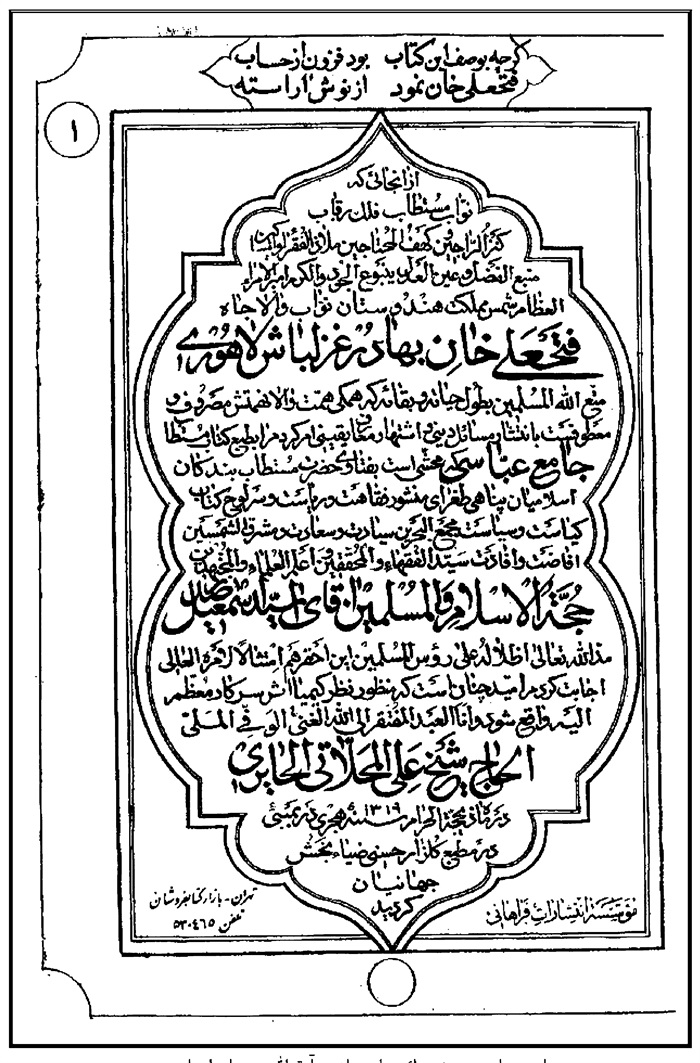 گرچه بوصف این کتاب بود فزون از حساب
فتحعلی خان نمود از نوش آراسته
۱
از آنجائی که
نواب مستطاب فلک رقاب
کنز الراجین و کهف المحتاجین ملاذ الفقراء و
منبع الفضل و عین العدل ینبوع الجود و الکرم امیر الامراء
العظام شمس مملکت هندوستان نواب والاجاه
فتحعلی خان بهادر غزلباش لاهوری
متع الله المسلمین بطول حیاته و بقائه که همگی همت والا نهمتش مصروف و
معطوفست بانتشار مسائل دینی و اشتهار معارف یقینی امر کردند مرا بطبع کتاب مستطاب
جامع عباسی که محشی است بفتاوی حضرت مستطاب بندگان
اسلامیان پناهی طغرای منشور فقاهت و ریاست و سر لوح کتاب
کیاست و سیاست مجمع البحرین سیادت و سعادت و مشرق الشمسین
افاضت و افادت سید الفقهاء و المحققین و اعلم العلماء و المجتهدین
حجة الاسلام و المسلمین آقای السید اسمعیل صدر
مد الله تعالی اظلاله علی رؤس المسلمین این احقر هم امتثالا لامره العالی
اجابت کردم امید چنان است که منظور نظر کیمیا اثر سرکار معظم
الیه واقع شود و انا العبد المفتقر الی الله الغنی الوفی الملی
الحاج شیخ علی المحلاتی الحایری
در ماه ذیحجة الحرام سنه ۱۳۱۹ هجری در بمبئی
در مطبع گلزار حسنی ضیاء بخش
جهانیان
گردید
مؤسسه انتشارات فراهانی
تهران - بازار کتابفروشان
تلفن ۵۳۰۴۶۵